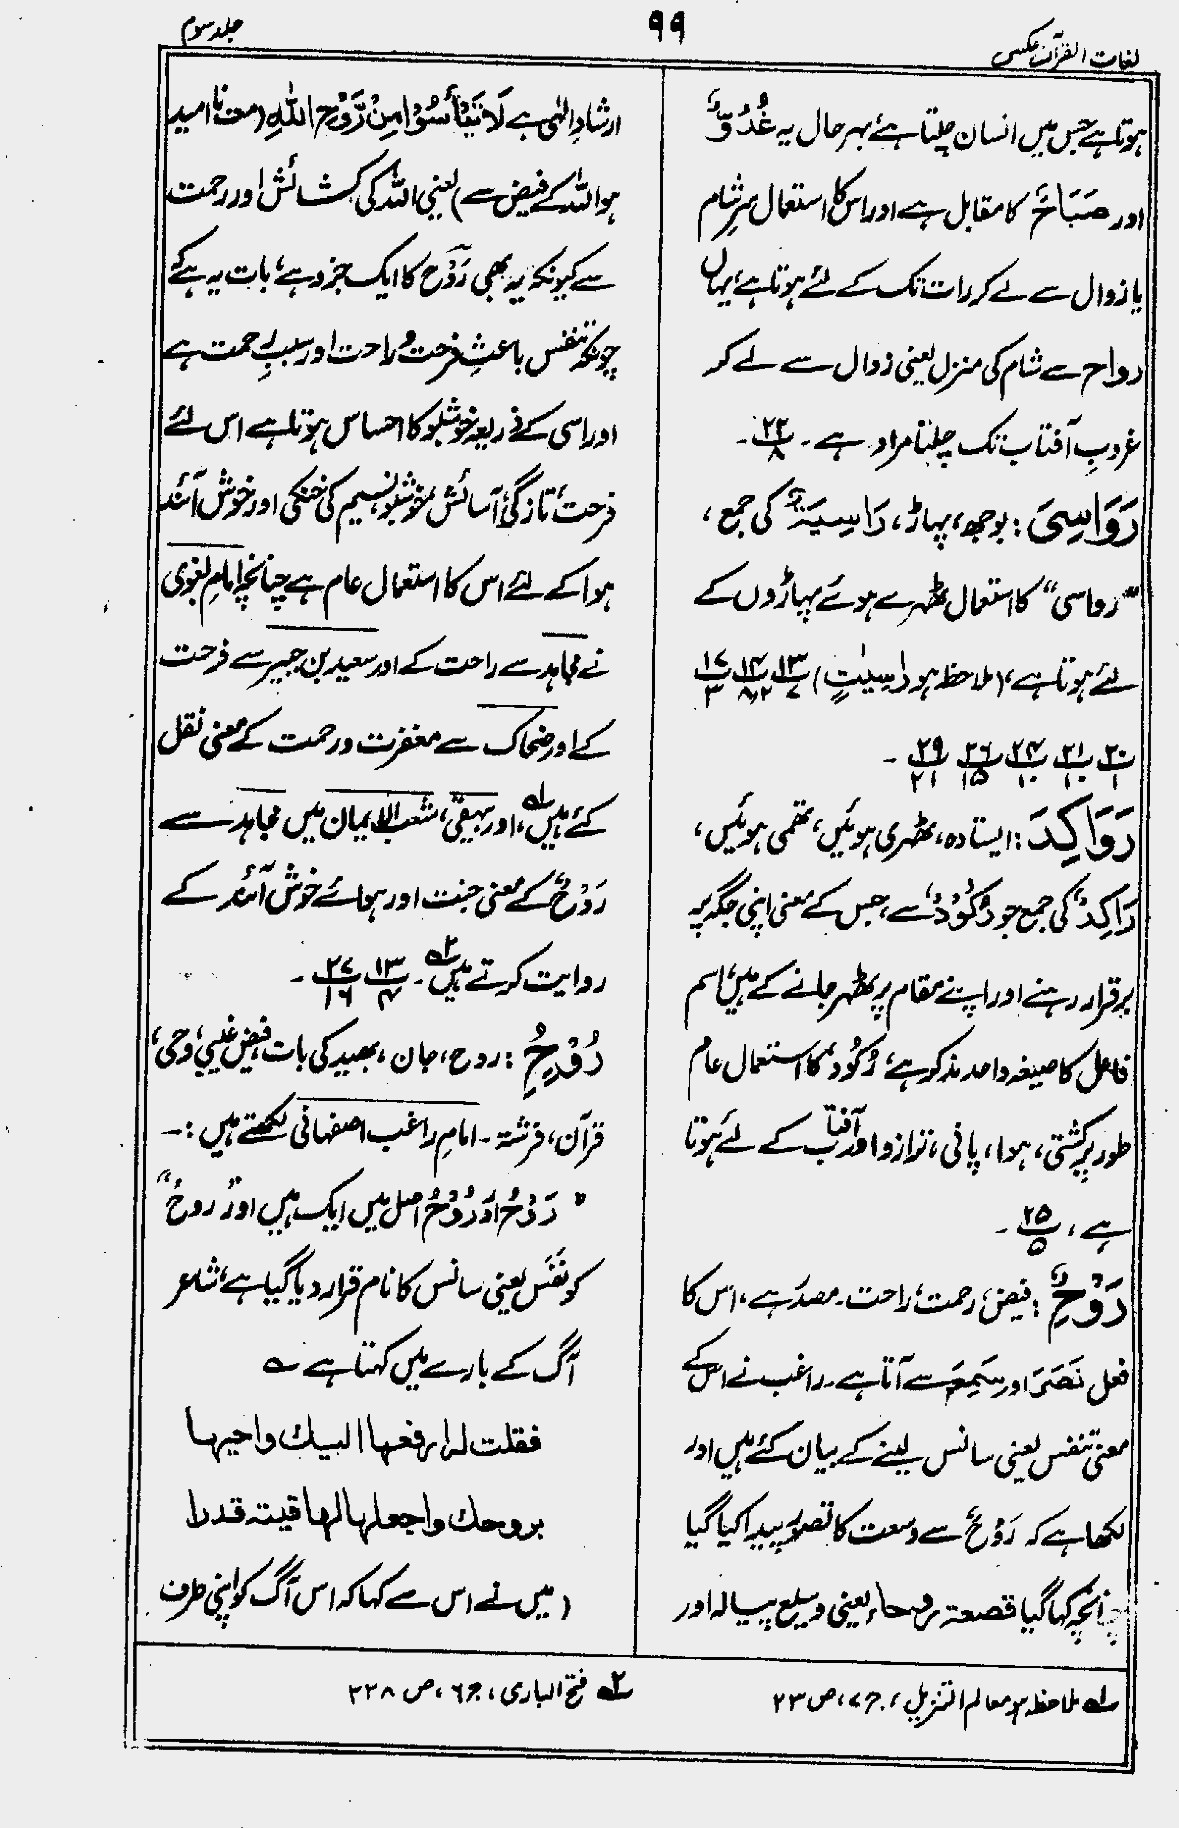 لغات القرآن عکسی
۹۹
جلد سوم
ہوتا ہے جس میں انسان چلتا ہے بہر حال یہ غُدُوٌّ
اور صَبَاحٌ کا مقابل ہے اور اس کا استعمال سرِ شام
یا زوال سے لے کر رات تک کے لئے ہوتا ہے، یہاں
رواح سے شام کی منزل یعنی زوال سے لے کر
غروبِ آفتاب تک چلنا مراد ہے۔ ۲۲/۸۔
رَوَاسِیَ: بوجھ، پہاڑ، رَاسِیَۃٌ کی جمع،
”رواسی“ کا استعمال ٹھہرے ہوئے پہاڑوں کے
لئے ہوتا ہے، (ملاحظہ ہو رٰسِیٰتٍ) ۱۳/۷ ۱۴/۸،۲ ۱۷/۳
۲۰/۱ ۲۱/۱۰ ۲۴/۱۰ ۲۶/۱۵ ۲۹/۲۱ ۔
رَوَاکِدَ: ایستادہ، ٹھہری ہوئیں، تھمی ہوئیں،
رَاکِدٌ کی جمع جو رُکُوْدٌ سے، جس کے معنی اپنی جگہ پر
برقرار رہنے اور اپنے مقام پر ٹھہر جانے کے ہیں، اسم
فاعل کا صیغہ واحد مذکور ہے، رُکُوْدٌ کا استعمال عام
طور پر کشتی، ہوا، پانی، ترازو اور آفتاب کے لئے ہوتا
ہے، ۲۵/۵ ۔
رَوْحِ: فیض، رحمت، راحت۔ مصدر ہے، اس کا
فعل نَصَرَ اور سَمِعَ سے آتا ہے۔ راغب نے اس کے
معنی تنفس یعنی سانس لینے کے بیان کئے ہیں اور
لکھا ہے کہ رَوْحٌ سے وسعت کا تصور پیدا کیا گیا
چنانچہ کہا گیا قصعۃ روحاء یعنی وسیع پیالہ اور
ارشادِ الٰہی ہے لَا تَیْأَسُوْا مِنْ رَّوْحِ اللّٰہِ (مت نا امید
ہو اللہ کے فیض سے) یعنی اللہ کی کشائش اور رحمت
سے کیونکہ یہ بھی رَوْح کا ایک جزو ہے، بات یہ ہے کہ
چونکہ تنفس باعثِ فرحت و راحت اور سببِ رحمت ہے
اور اسی کے ذریعہ خوشبو کا احساس ہوتا ہے اس لئے
فرحت، تازگی، آسائش، خوشبو، نسیم کی خنکی اور خوش آئند
ہوا کے لئے اس کا استعمال عام ہے چنانچہ امام بغوی
نے مجاہد سے راحت کے اور سعید بن جبیر سے فرحت
کے اور ضحاک سے مغفرت و رحمت کے معنی نقل
کئے ہیں ؎۱، اور بیہقی، شعب الایمان میں مجاہد سے
رَوْحٌ کے معنی جنت اور ہوائے خوش آئند کے
روایت کرتے ہیں ؎۲۔ ۱۳/۴ ۲۷/۱۶ ۔
رُوْحِ: روح، جان، بھید کی بات، فیض غیبی، وحی،
قرآن، فرشتہ۔ امام راغب اصفہانی لکھتے ہیں:۔
”رَوْحٌ اور رُوْحٌ اصل میں ایک ہیں اور ”روحٌ“
کو نَفَس یعنی سانس کا نام قرار دیا گیا ہے، شاعر
آگ کے بارے میں کہتا ہے ؎
فقلت لہ ارفعھا الیک واحیھا
بروحک واجعلھا لھا قیتۃ قدرا
(میں نے اس سے کہا کہ اس آگ کو اپنی طرف
؎۱ ملاحظہ ہو معالم التنزیل، ج ۷، ص ۲۳
؎۲ فتح الباری، ج ۶، ص ۲۲۸